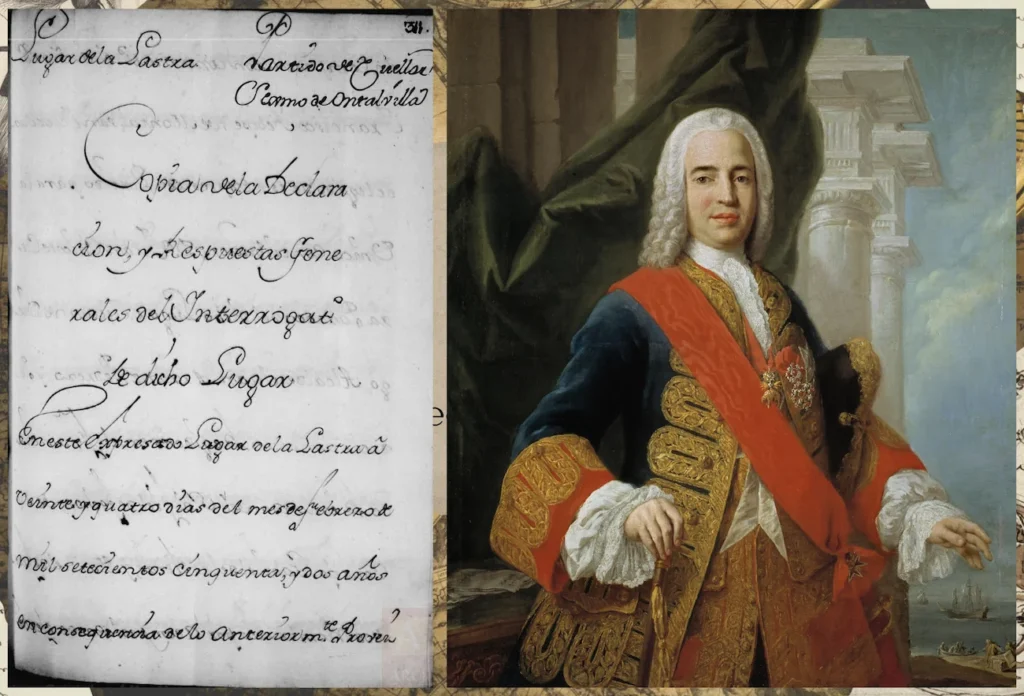 311.
Lugar de la Lastra Partido de Cuellar
Sexmo de Ontalvilla
Copia de la Declara
cion, y Respuestas Gene
rales del Interrogatº
de dicho Lugar
En este Expresado Lugar de la Lastra â
Veinte y quatro dias del mes de febrero de
mil setecientos cinquenta, y dos años
en consequencia de lo anteriorm.te
e